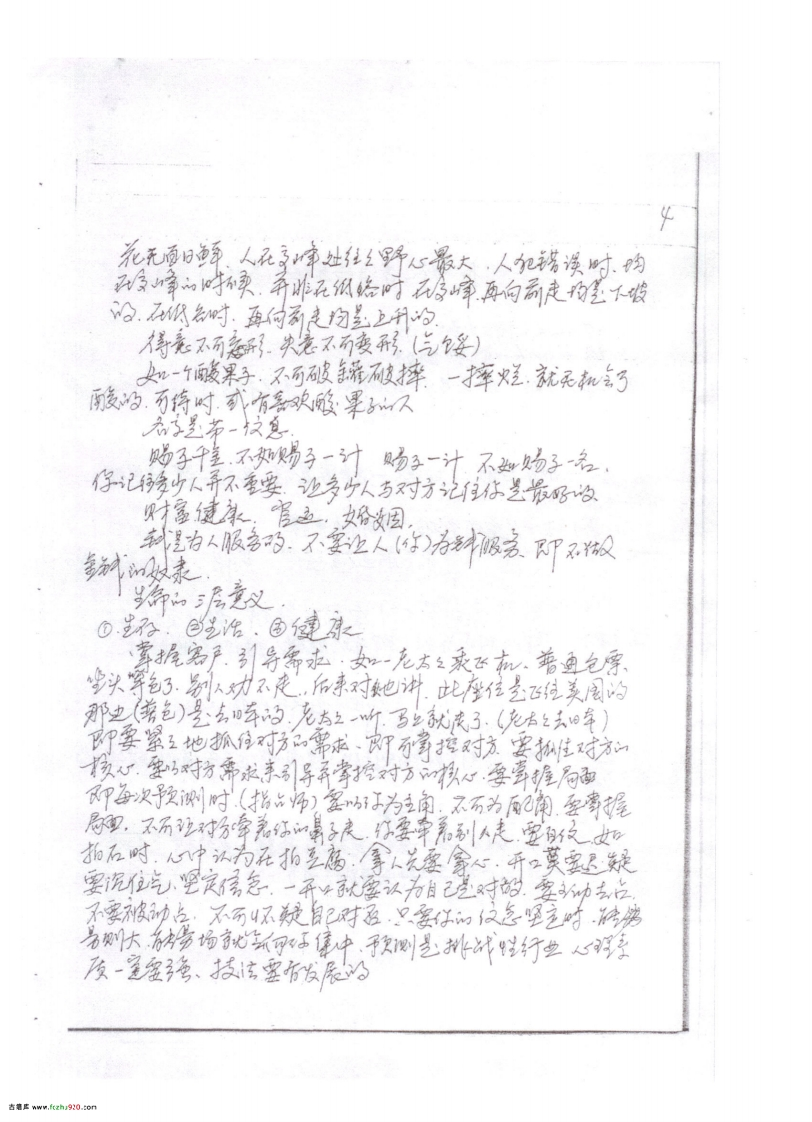 4
花无百日鲜，人在高峰处往往野心最大，人犯错误时，均
在高峰的时候，并非在低络时 在高峰，再向前走均是下坡
的，在低谷时，再向前走均是上升的，
得意不可忘形，失意不可变形，(气馁)
如一个酸果子，不可破罐破摔，一摔烂，就无机会了
酸的，可待时，或有喜欢酸果子的人
名字是第一信息，
赐子千金，不如赐子一计 赐子一计，不如赐子一名，
你记住多少人并不重要，让多少人与对方记住你是最好的
财富健康，官运，婚姻，
钱是为人服务的，不要让人(你)为钱服务，即不做
金钱的奴隶，
生命的三层意义，
①生存，②生活，③健康
掌握客户，引导需求，如一老太乙乘飞机，普通仓票，
坐头等仓了，别人劝不走，后来对她讲，此座位是飞往美国的
那边(普仓)是去日本的，老太乙一听，马上就走了，(老太乙去日本)
即要紧乙地抓住对方的需求，即可掌控对方，要抓住对方的
核心，要以对方需求来引导并掌控对方的核心，要掌握局面
即每次预测时，(指占师)要以你为主角，不可为配角，要掌握
局面，不可让对方牵着你的鼻子走，你要牵着别人走，要自信，如
拍石时，心中认为在拍豆腐，拿人先要拿心，开口莫要思疑
要沉住气，坚定信念，一开口就要认为自己是对的，要主动去占，
不要被动占，不可怀疑自己对否，只要你的信念坚定时，能
量则大，能量场就会向你集中，预测是挑战性行业 心理素
质一定要强、技法要有发展的
古籍库 www.fczhs920.com